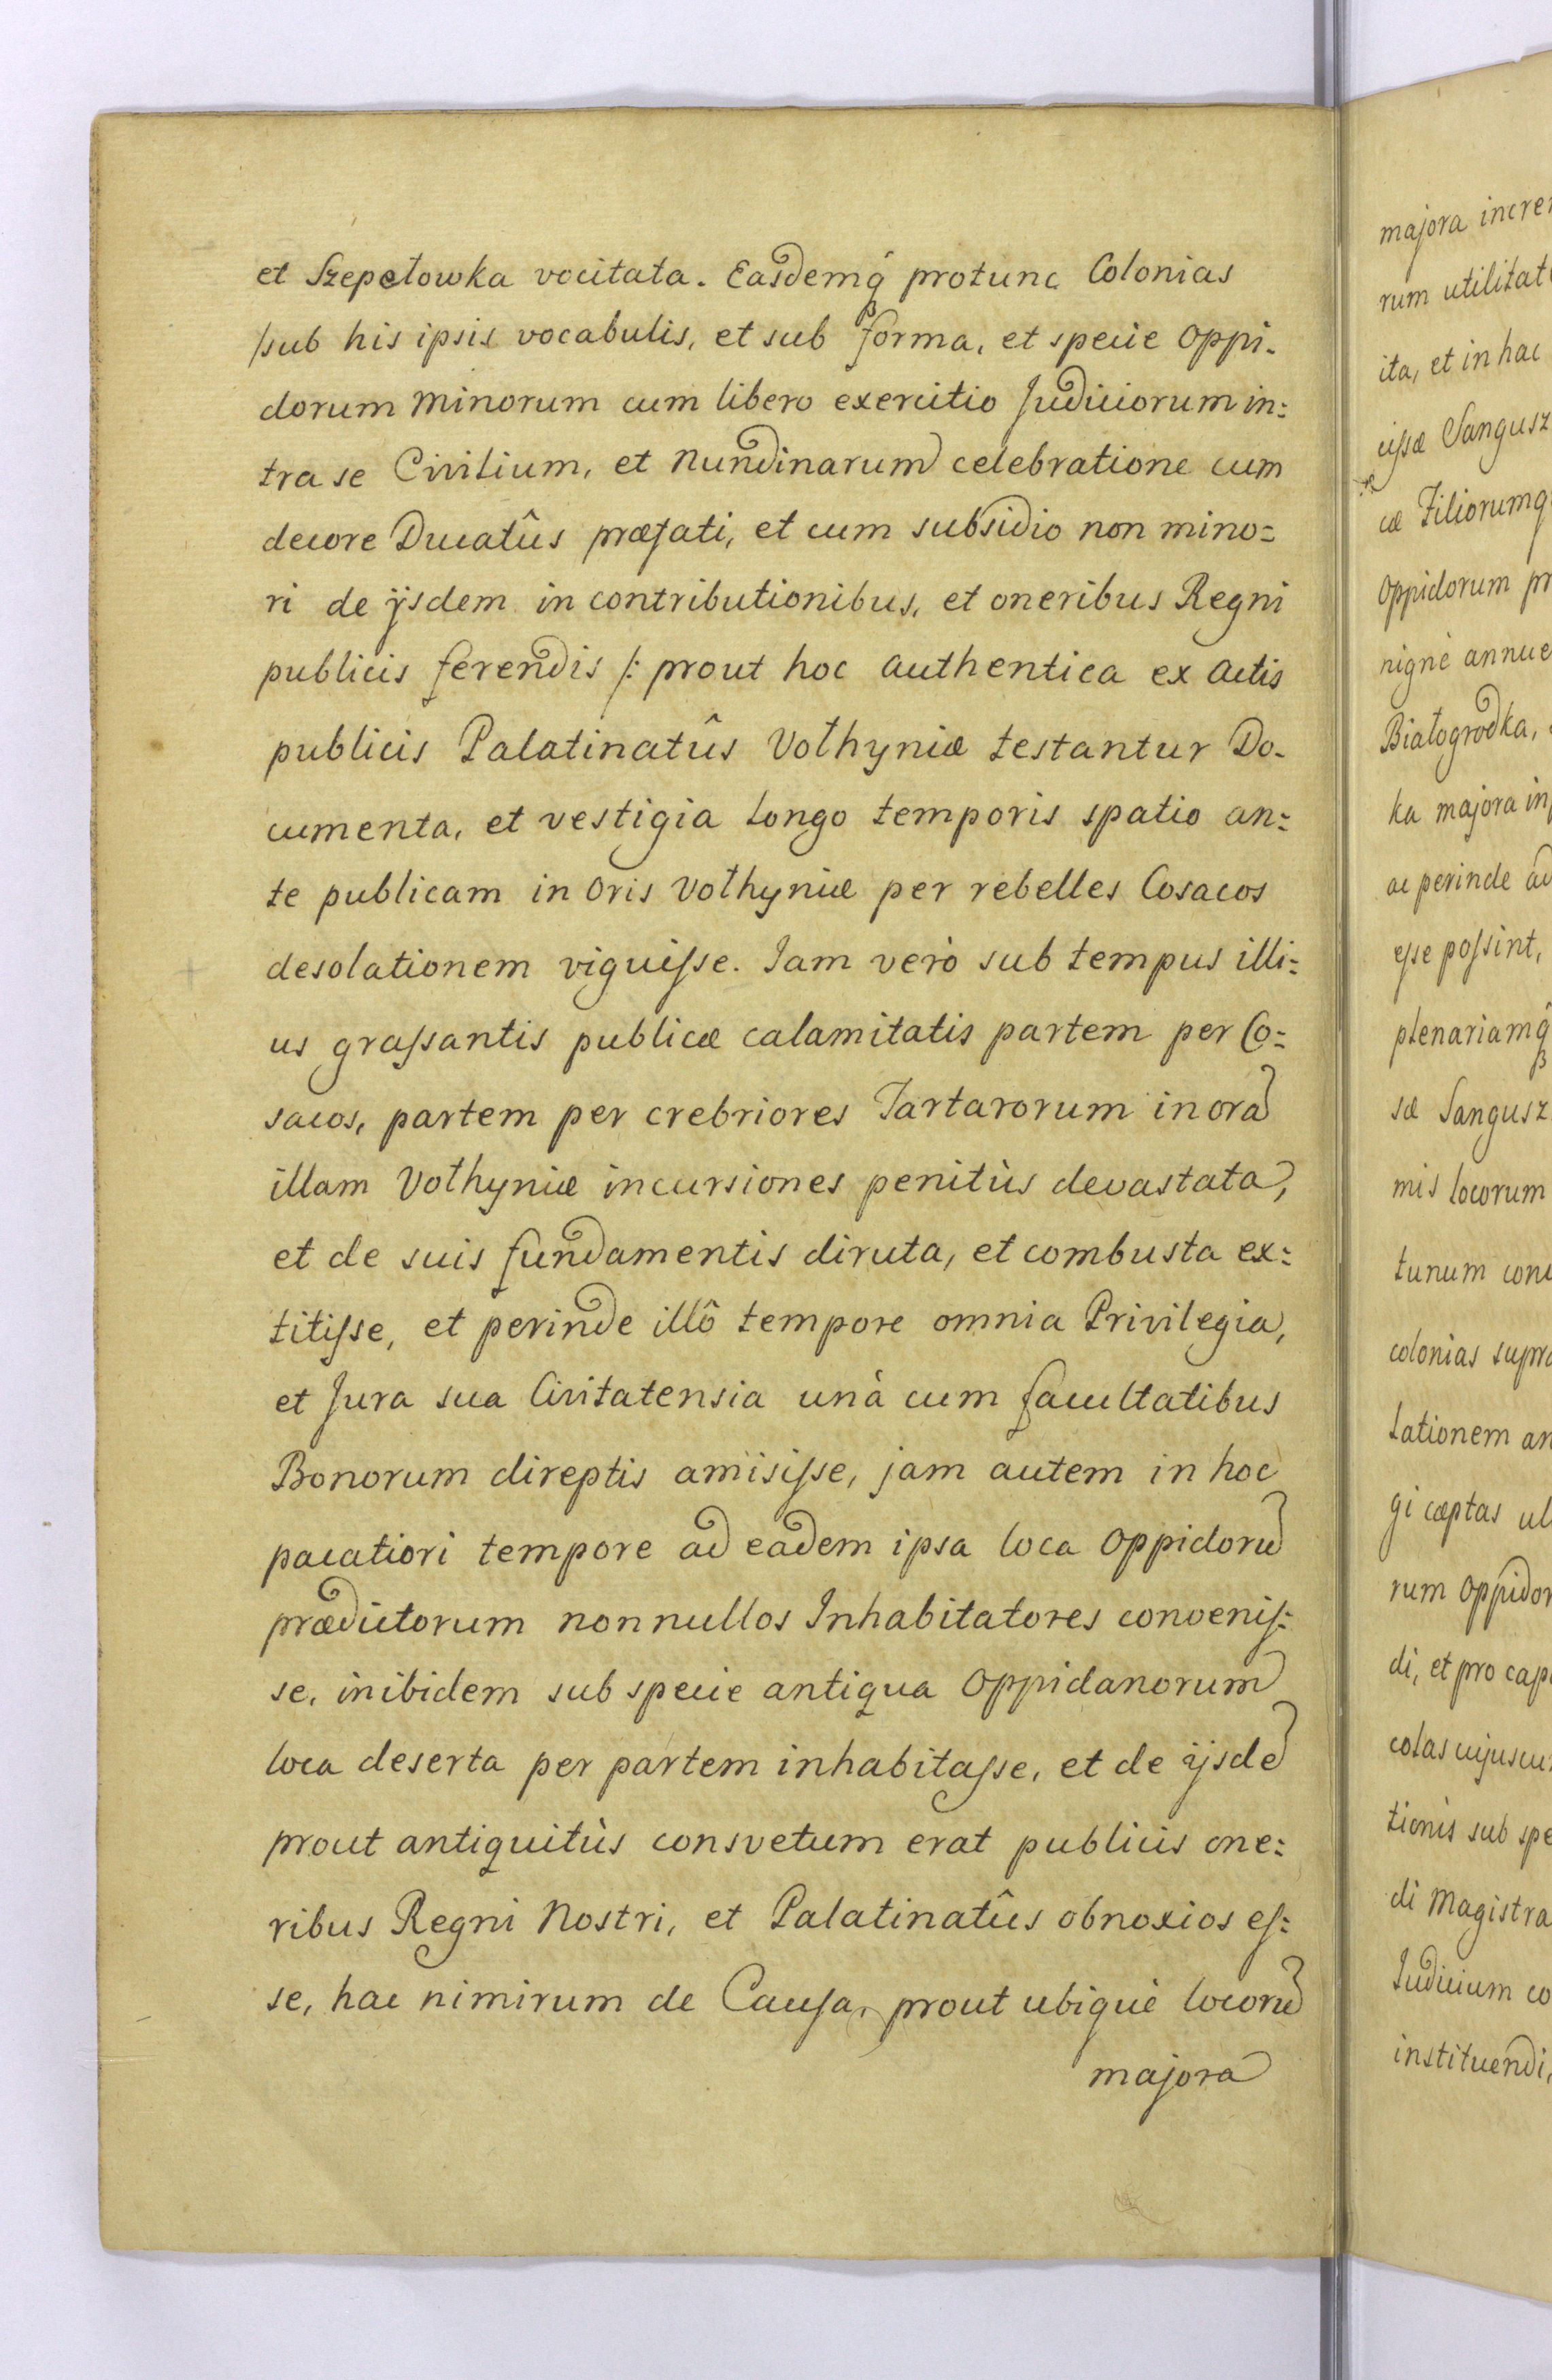 et Szepetowka vocitata. Easdemq́ᵦ protunc Colonias
sub his ipsis vocabulis, et sub forma, et specie oppi-
dorum minorum cum libero exercitio Judiciorum in:
tra se Civilium, et Nundinarum celebratione cum
decore Ducatûs præfati, et cum subsidio non mino=
ri de ijsdem in contributionibus, et oneribus Regni
publicis ferendis /: prout hoc authentica ex actis
publicis Palatinatûs Vołhyniæ testantur Do-
cumenta, et vestigia longo temporis spatio an:
te publicam in oris Vołhyniæ per rebelles Cosacos
desolationem viguiſse. Jam verò sub tempus illi:
us graſsantis publicæ calamitatis partem per Co:
sacos, partem per crebriores Tartarorum in ora
illam Vołhyniæ incursiones penitùs devastata,
et de suis fundamentis diruta, et combusta ex:
titiſse, et perinde illô tempore omnia Privilegia,
et Jura sua Civitatensia unà cum facultatibus
Bonorum direptis amisiſse, jam autem in hoc
pacatiori tempore ad eadem ipsa loca oppidorũ
prædictorum nonnullos Inhabitatores conveniſ:
se, inibidem sub specie antiqua oppidanorum
loca deserta per partem inhabitaſse, et de ijsdẽ
prout antiquitùs consvetum erat publicis one:
ribus Regni Nostri, et Palatinatûs obnoxios eſ:
se, hac nimirum de Cauſa, prout ubiquè locorũ
majora
majora
rum
ita, et in hac
Sangusz
oppidorum
Białogrodka,
ka majora
ac perinde
eſse poſsint,
sæ Sangusz
mis locorum
tunum
colonias
lationem
gi cæptas
rum
di, et pro
tionis sub
di
Judicium
instituendi,